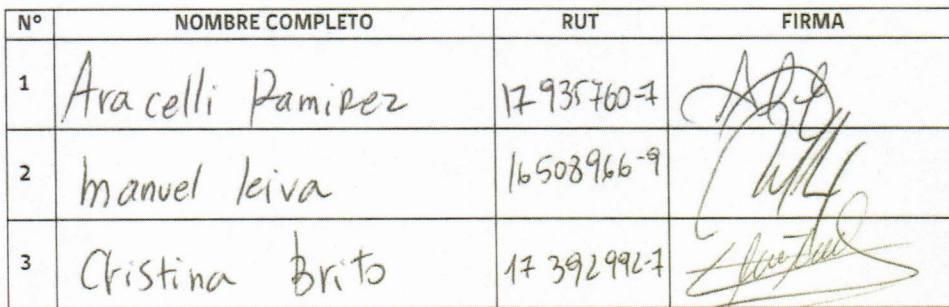 N° NOMBRE COMPLETO RUT FIRMA
1 Aracelli Ramirez 17 935760-7
2 manuel leiva 16508966-9
3 Cristina Brito 17 392992-7